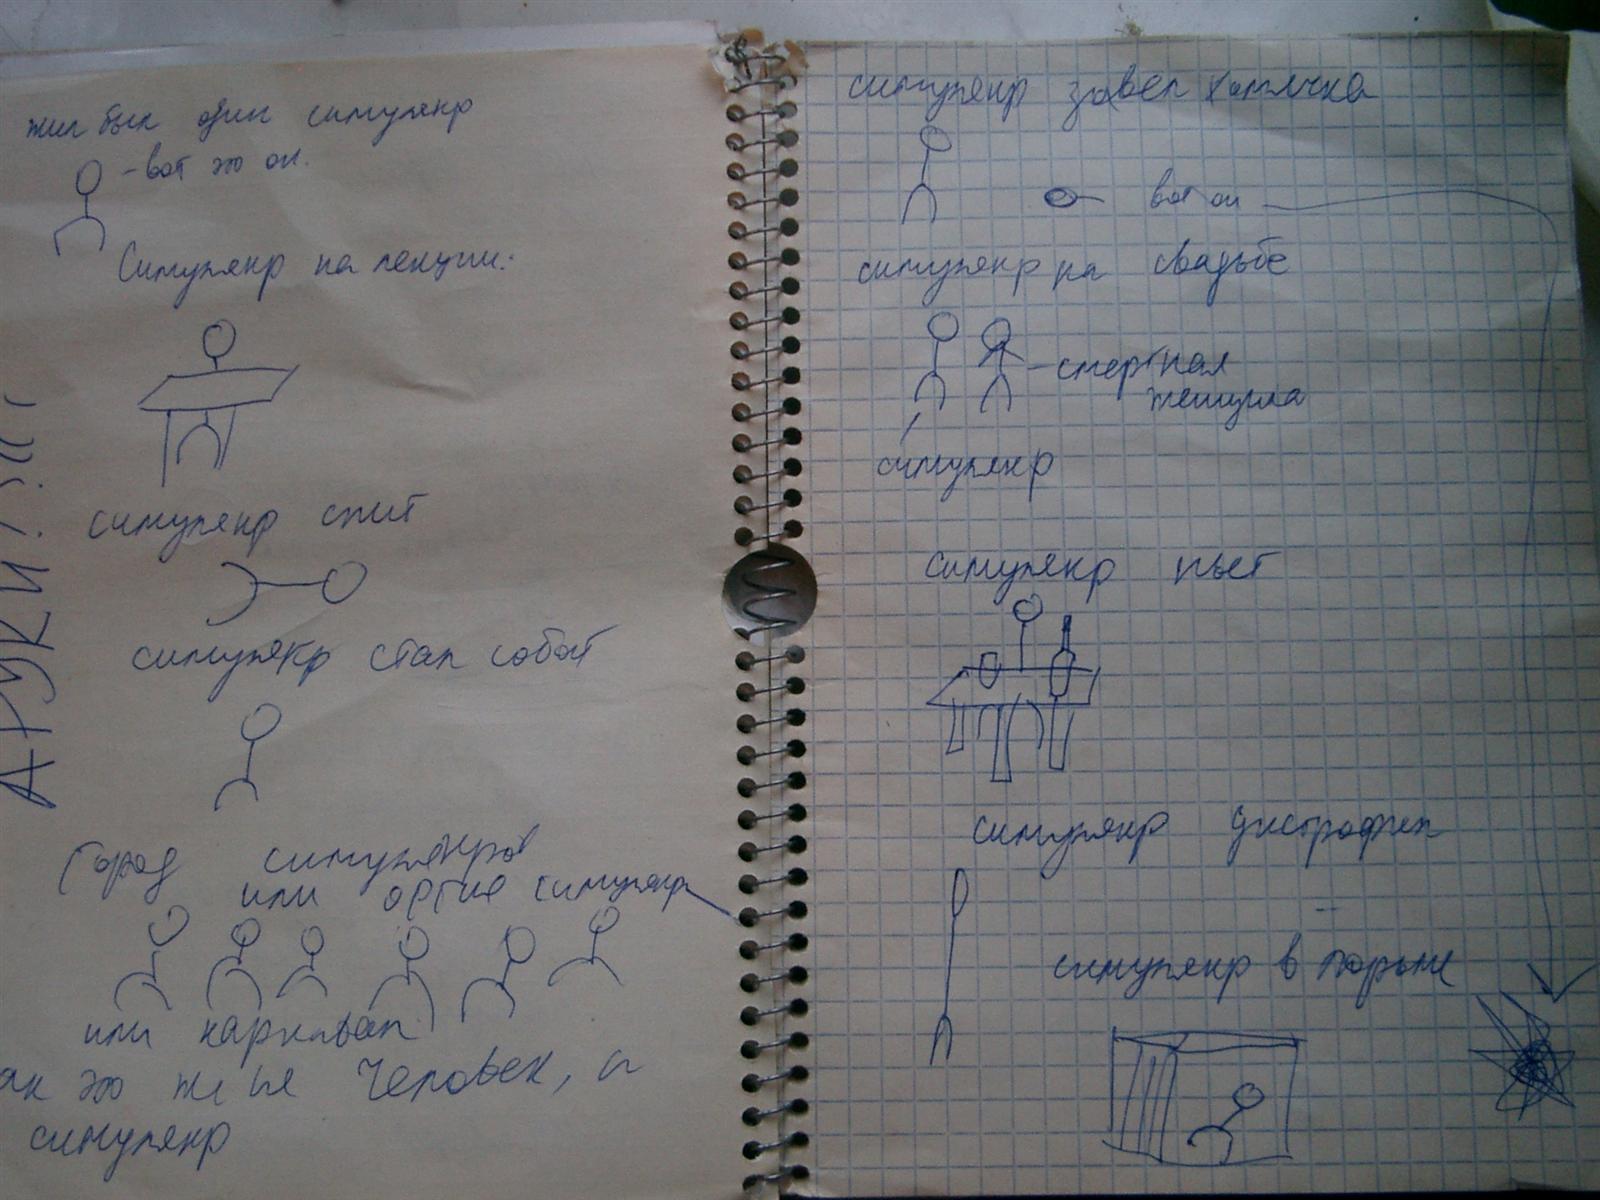 жил был один симулякр
- вот это он.
Симулякр на лекции:
симулякр спит
симулякр стал собой
Город симулякров
или оргия симулякр
или карнавал
это не человек, а
симулякр
симулякр завел хомячка
вот он
симулякр на свадьбе
- смертная
женщина
симулякр
симулякр пьет
симулякр дистрофик
симулякр в тюрьме